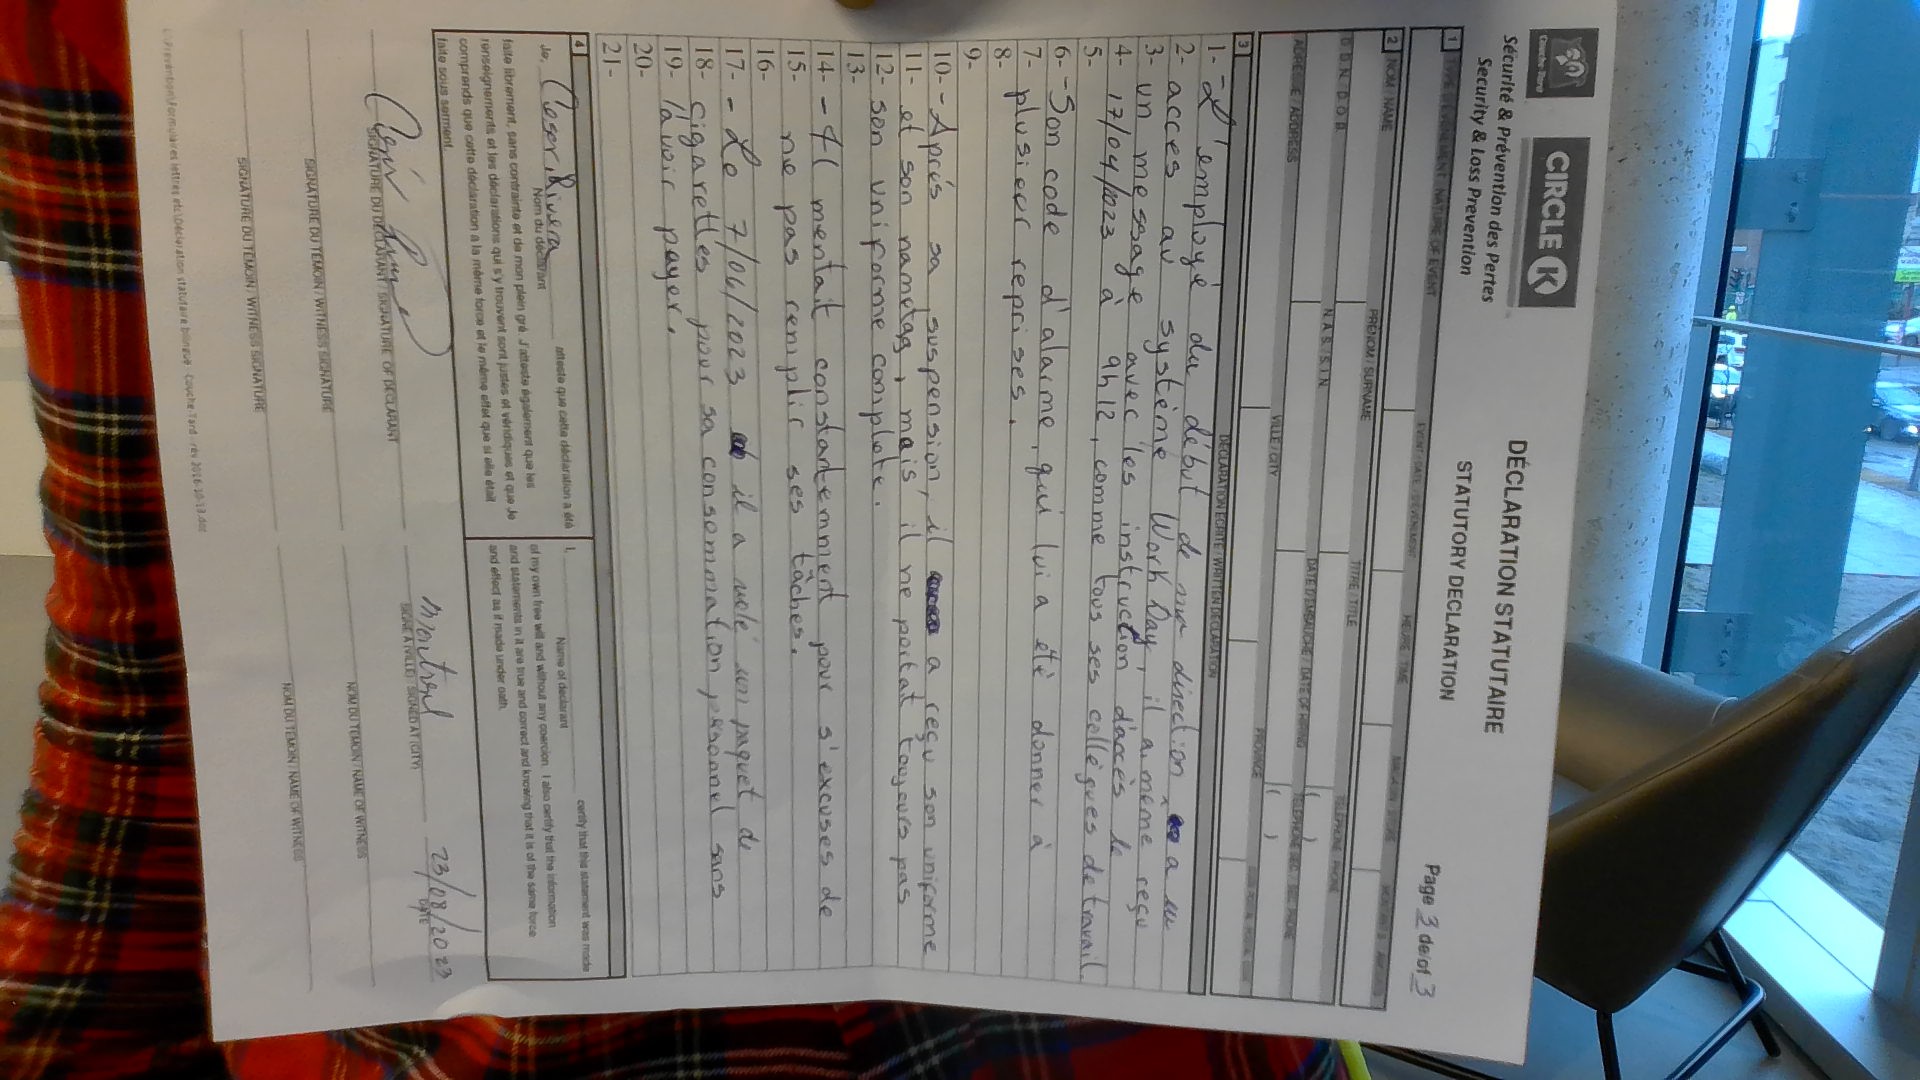 Couche-Tard
CIRCLE K
Sécurité & Prévention des Pertes
Security & Loss Prevention
DÉCLARATION STATUTAIRE
STATUTORY DECLARATION
Page 3 de/of 3
1 TYPE D'ÉVÉNEMENT / NATURE OF EVENT
2 NOM / NAME
PRÉNOM / SURNAME
TITRE / TITLE
D.D.N. / D.O.B.
N.A.S. / S.I.N.
DATE D'EMBAUCHE / DATE OF HIRING
ADRESSE / ADDRESS
VILLE / CITY
PROVINCE
3 DÉCLARATION ÉCRITE / WRITTEN DECLARATION
1- - L'employé du début de ma direction a eu
2- acces au système Work Day, il a même reçu
3- un message avec les instruction d'accès le
4- 17/04/2023 à 9h12, comme tous ses collègues de travail
5-
6- - Son code d'alarme, qui lui a été donner à
7- plusieur reprises.
8-
9-
10- - Après sa suspension, il a reçu son uniforme
11- et son nametag, mais, il ne portat toujours pas
12- son uniforme complete.
13-
14- - Il mentait constantemment pour s'excuses de
15- ne pas remplir ses tâches.
16-
17- - Le 7/06/2023 il a volé un paquet de
18- cigarettes pour sa consommation personnel sans
19- l'avoir payer.
20-
21-
4
Je, Cesar Rivera atteste que cette déclaration a été
Nom du déclarant
faite librement, sans contrainte et de mon plein gré. J'atteste également que les
renseignements et les déclarations qui s'y trouvent sont justes et véridiques et que je
comprends que cette déclaration a la même force et le même effet que si elle était
faite sous serment.
I, certify that this statement was made
Name of declarant
of my own free will and without any coercion. I also certify that the information
and statements in it are true and correct and knowing that it is of the same force
and effect as if made under oath.
Montreal
23/08/2023
SIGNATURE DU DÉCLARANT / SIGNATURE OF DECLARANT
SIGNÉ À (VILLE) / SIGNED AT (CITY)
DATE
SIGNATURE DU TÉMOIN / WITNESS SIGNATURE
NOM DU TÉMOIN / NAME OF WITNESS
SIGNATURE DU TÉMOIN / WITNESS SIGNATURE
NOM DU TÉMOIN / NAME OF WITNESS